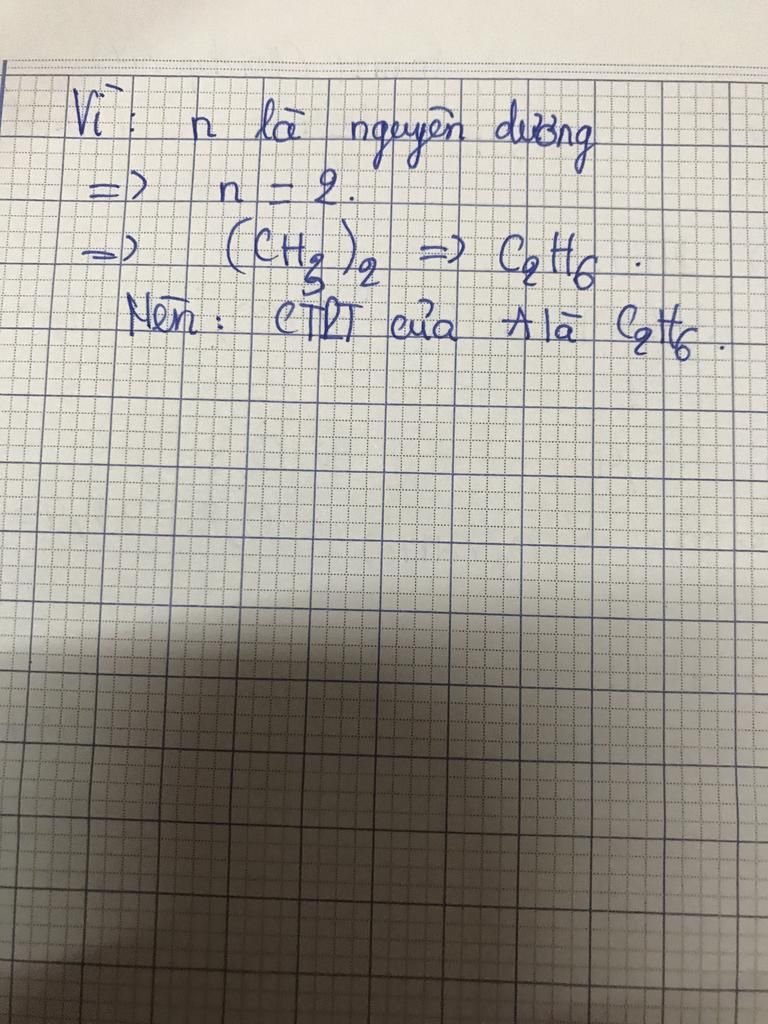 Vì: n là nguyên dương
=> n = 2.
=> (CH₃)₂ => C₂H₆.
Nên: CTPT của A là C₂H₆.